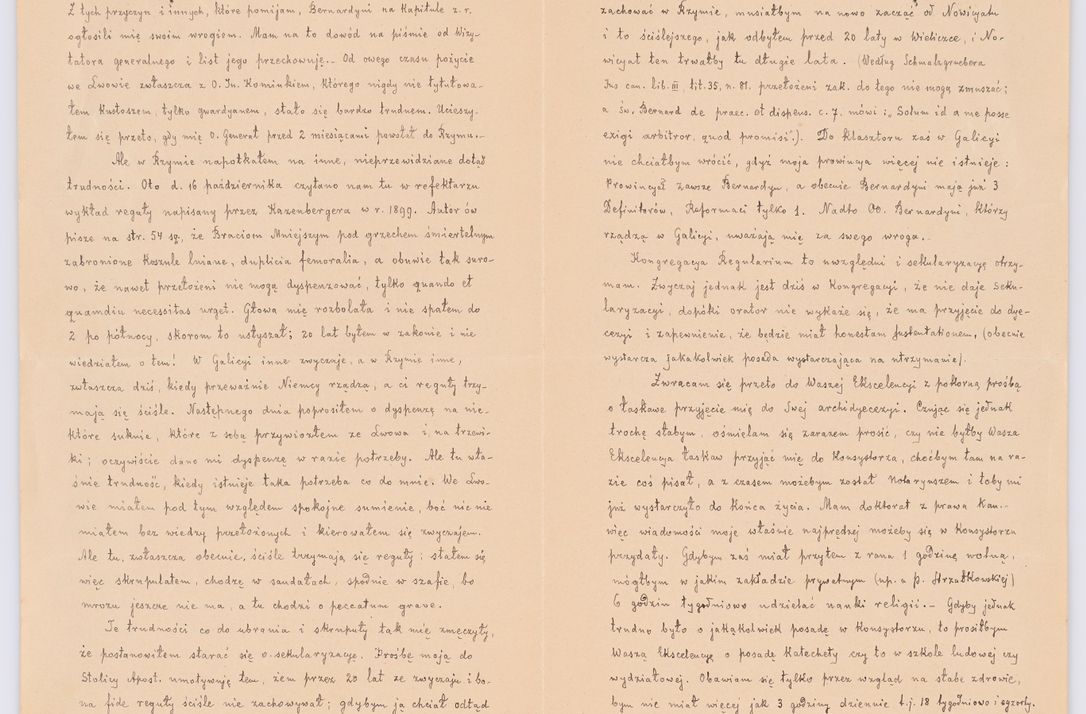 Z tych przyczyn i innych, które pomijam, Bernardyni na Kapitule z. r.
ogłosili mię swoim wrogiem. Mam na to dowód na piśmie od Wizy-
tatora generalnego i list jego przechowuję.. Od owego czasu pożycie
we Lwowie zwłaszcza z O. Jn. Kominkiem, którego nigdy nie tytułowa-
łem Kustoszem, tylko gwardyanem, stało się bardzo trudnem. Ucieszy-
łem się przeto, gdy mię O. Generał przed 2 miesiącami powołał do Rzymu..
Ale w Rzymie napotkałem na inne, nieprzewidziane dotąd
trudności. Oto d. 16 października czytano nam tu w refektarzu
wykład reguły napisany przez Kazenbergera w r. 1899. Autor ów
pisze na str. 54 sq, że Braciom Mniejszym pod grzechem śmiertelnym
zabronione Koszule lniane, duplicia femoralia, a obuwie tak suro-
wo, że nawet przełożeni nie mogą dyspenzować, tylko quando et
quamdiu necessitas urget. Głowa mię rozbolała i nie spałem do
2 po północy, skorom to usłyszał; 20 lat byłem w zakonie i nie
wiedziałem o tem! W Galicyi inne zwyczaje, a w Rzymie inne,
zwłaszcza dziś, kiedy przeważnie Niemcy rządzą, a ci reguły trzy-
mają się ściśle. Następnego dnia poprosiłem o dyspenzę na nie-
które suknie, które z sobą przywiozłem ze Lwowa i na trzewi-
ki; oczywiście dano mi dyspenzę w razie potrzeby. Ale tu wła-
śnie trudność, kiedy istnieje taka potrzeba co do mnie. We Lwo-
wie miałem pod tym względem spokojne sumienie, boć nic nie
miałem bez wiedzy przełożonych i kierowałem się zwyczajem.
Ale tu, zwłaszcza obecnie, ściśle trzymają się reguły; stałem się
więc skrupulatem, chodzę w sandałach, spodnie w szafie, bo
mrozu jeszcze nie ma, a tu chodzi o peccatum grave.
Te trudności co do ubrania i skrupuły tak mię zmęczyły,
że postanowiłem starać się o sekularyzacyę. Prośbę moją do
Stolicy Apost. umotywuję tem, żem przez 20 lat ze zwyczaju i bo-
na fide reguły ściśle nie zachowywał; gdybym ją chciał odtąd
zachować w Rzymie, musiałbym na nowo zacząć od Nowicyatu
i to ściślejszego, jak odbyłem przed 20 laty w Wieliczce, i No-
wicyat ten trwałby tu długie lata. (Według Schmalzgruebera
Jus can. lib. III tit. 35, n. 81. przełożeni zak. do tego nie mogą zmuszać;
a św. Bernard de praec. et dispens. c. 7. mówi: „Solum id a me posse
exigi arbitror, quod promisi".). Do klasztoru zaś w Galicyi
nie chciałbym wrócić, gdyż moja prowincya więcej nie istnieje:
Prowincyał zawsze Bernardyn, a obecnie Bernardyni mają już 3
Definitorów, Reformaci tylko 1. Nadto OO. Bernardyni, którzy
rządzą w Galicyi, uważają mię za swego wroga..
Kongregacya Regularium to uwzględni i sekularyzacyę otrzy-
mam. Zwyczaj jednak jest dziś w Kongregacyi, że nie daje seku-
laryzacyi, dopóki orator nie wykaże się, że ma przyjęcie do dye-
cezyi i zapewnienie, że będzie miał honestam sustentationem, (obecnie
wystarcza jakakolwiek posada wystarczająca na utrzymanie).
Zwracam się przeto do Waszej Ekscelencyi z pokorną prośbą
o łaskawe przyjęcie mię do Swej archidyecezyi. Czując się jednak
trochę słabym, ośmielam się zarazem prosić, czy nie byłby Wasza
Ekscelencya łaskaw przyjąć mię do Konsystorza, choćbym tam na ra-
zie coś pisał, a z czasem możebym został notaryuszem i toby mi
już wystarczyło do końca życia. Mam doktorat z prawa Kan.-
więc wiadomości moje właśnie najprędzej możeby się w Konsystorzu
przydały. Gdybym zaś miał przytem z rana 1 godzinę wolną,
mógłbym w jakim zakładzie prywatnym (np. u p. Strzałkowskiej)
6 godzin tygodniowo udzielać nauki religii.- Gdyby jednak
trudno było o jakąkolwiek posadę w Konsystorzu, to prosiłbym
Waszą Ekscelencyę o posadę Katechety czy to w szkole ludowej czy
wydziałowej. Obawiam się tylko przez wzgląd na słabe zdrowie,
bym nie miał więcej jak 3 godziny dziennie t. j. 18 tygodniowo i egzorty.